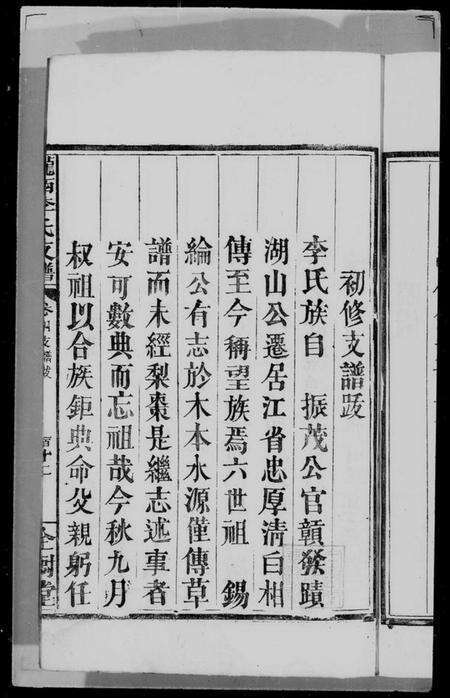 初修支譜跋
李氏族自 振茂公官贛發蹟
湖山公遷居江省忠厚淸白相
傳至今稱望族焉六世祖 錫
綸公有志於木本水源僅傳草
譜而未經梨棗是繼志述事者
安可數典而忘祖哉今秋九月
叔祖以合族鉅典命父親躬任
隴西李氏支譜 卷四支譜跋